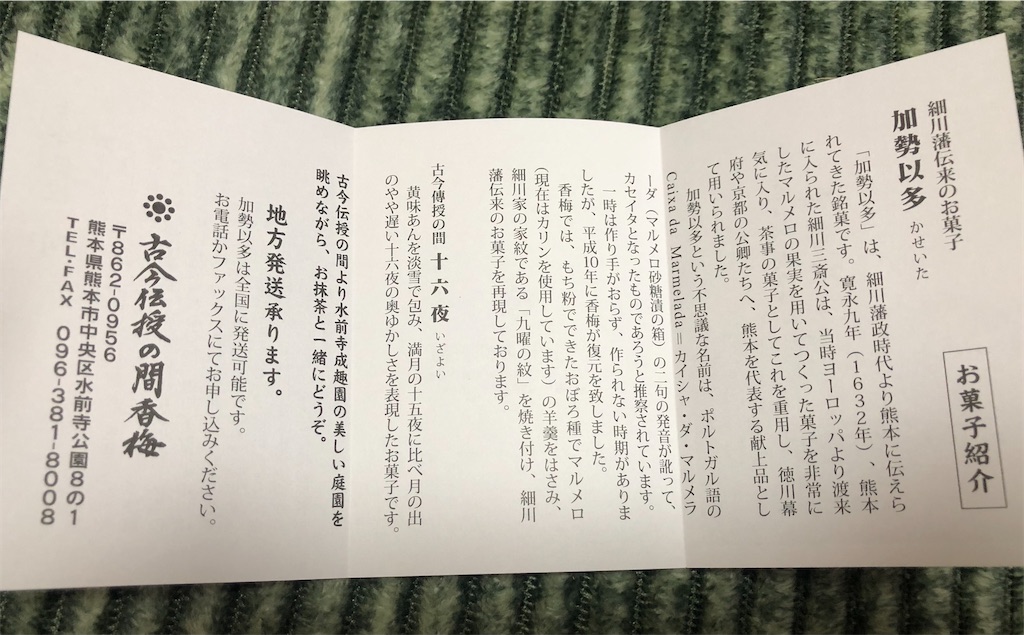 お菓子紹介
細川藩伝来のお菓子
加勢以多 かせいた
「加勢以多」は、細川藩政時代より熊本に伝えら
れてきた銘菓です。寛永九年（1632年）、熊本
に入られた細川三斎公は、当時ヨーロッパより渡来
したマルメロの果実を用いてつくった菓子を非常に
気に入り、茶事の菓子としてこれを重用し、徳川幕
府や京都の公卿たちへ、熊本を代表する献上品とし
て用いられました。
加勢以多という不思議な名前は、ポルトガル語の
Caixa da Marmelada＝カイシャ・ダ・マルメラ
ーダ（マルメロ砂糖漬の箱）の二句の発音が訛って、
カセイタとなったものであろうと推察されています。
一時は作り手がおらず、作られない時期がありま
したが、平成10年に香梅が復元を致しました。
香梅では、もち粉でできたおぼろ種でマルメロ
（現在はカリンを使用しています）の羊羹をはさみ、
細川家の家紋である「九曜の紋」を焼き付け、細川
藩伝来のお菓子を再現しております。
古今傳授の間 十六夜 いざよい
黄味あんを淡雪で包み、満月の十五夜に比べ月の出
のやや遅い十六夜の奥ゆかしさを表現したお菓子です。
古今伝授の間より水前寺成趣園の美しい庭園を
眺めながら、お抹茶と一緒にどうぞ。
地方発送承ります。
加勢以多は全国に発送可能です。
お電話かファックスにてお申し込みください。
古今伝授の間香梅
〒862-0956
熊本県熊本市中央区水前寺公園8の1
TEL・FAX 096-381-8008